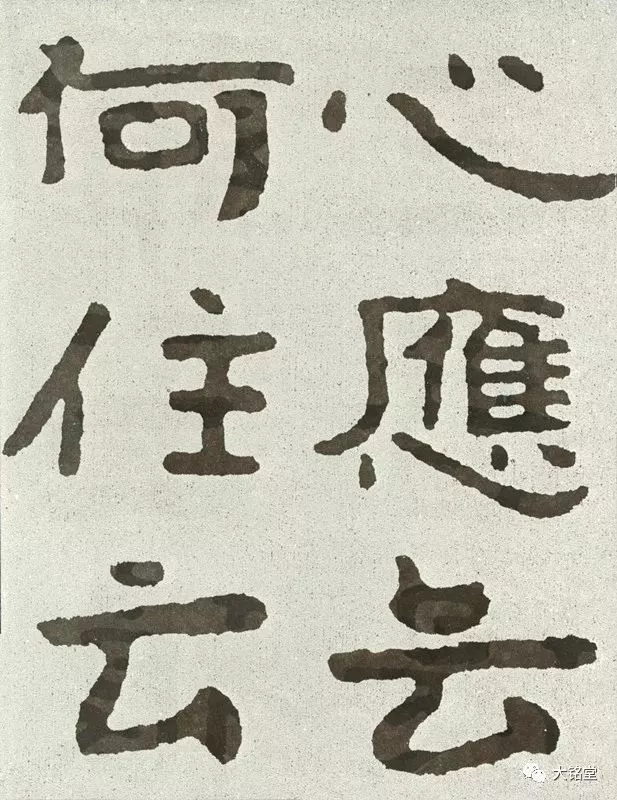 心應云
何住云
大铭堂